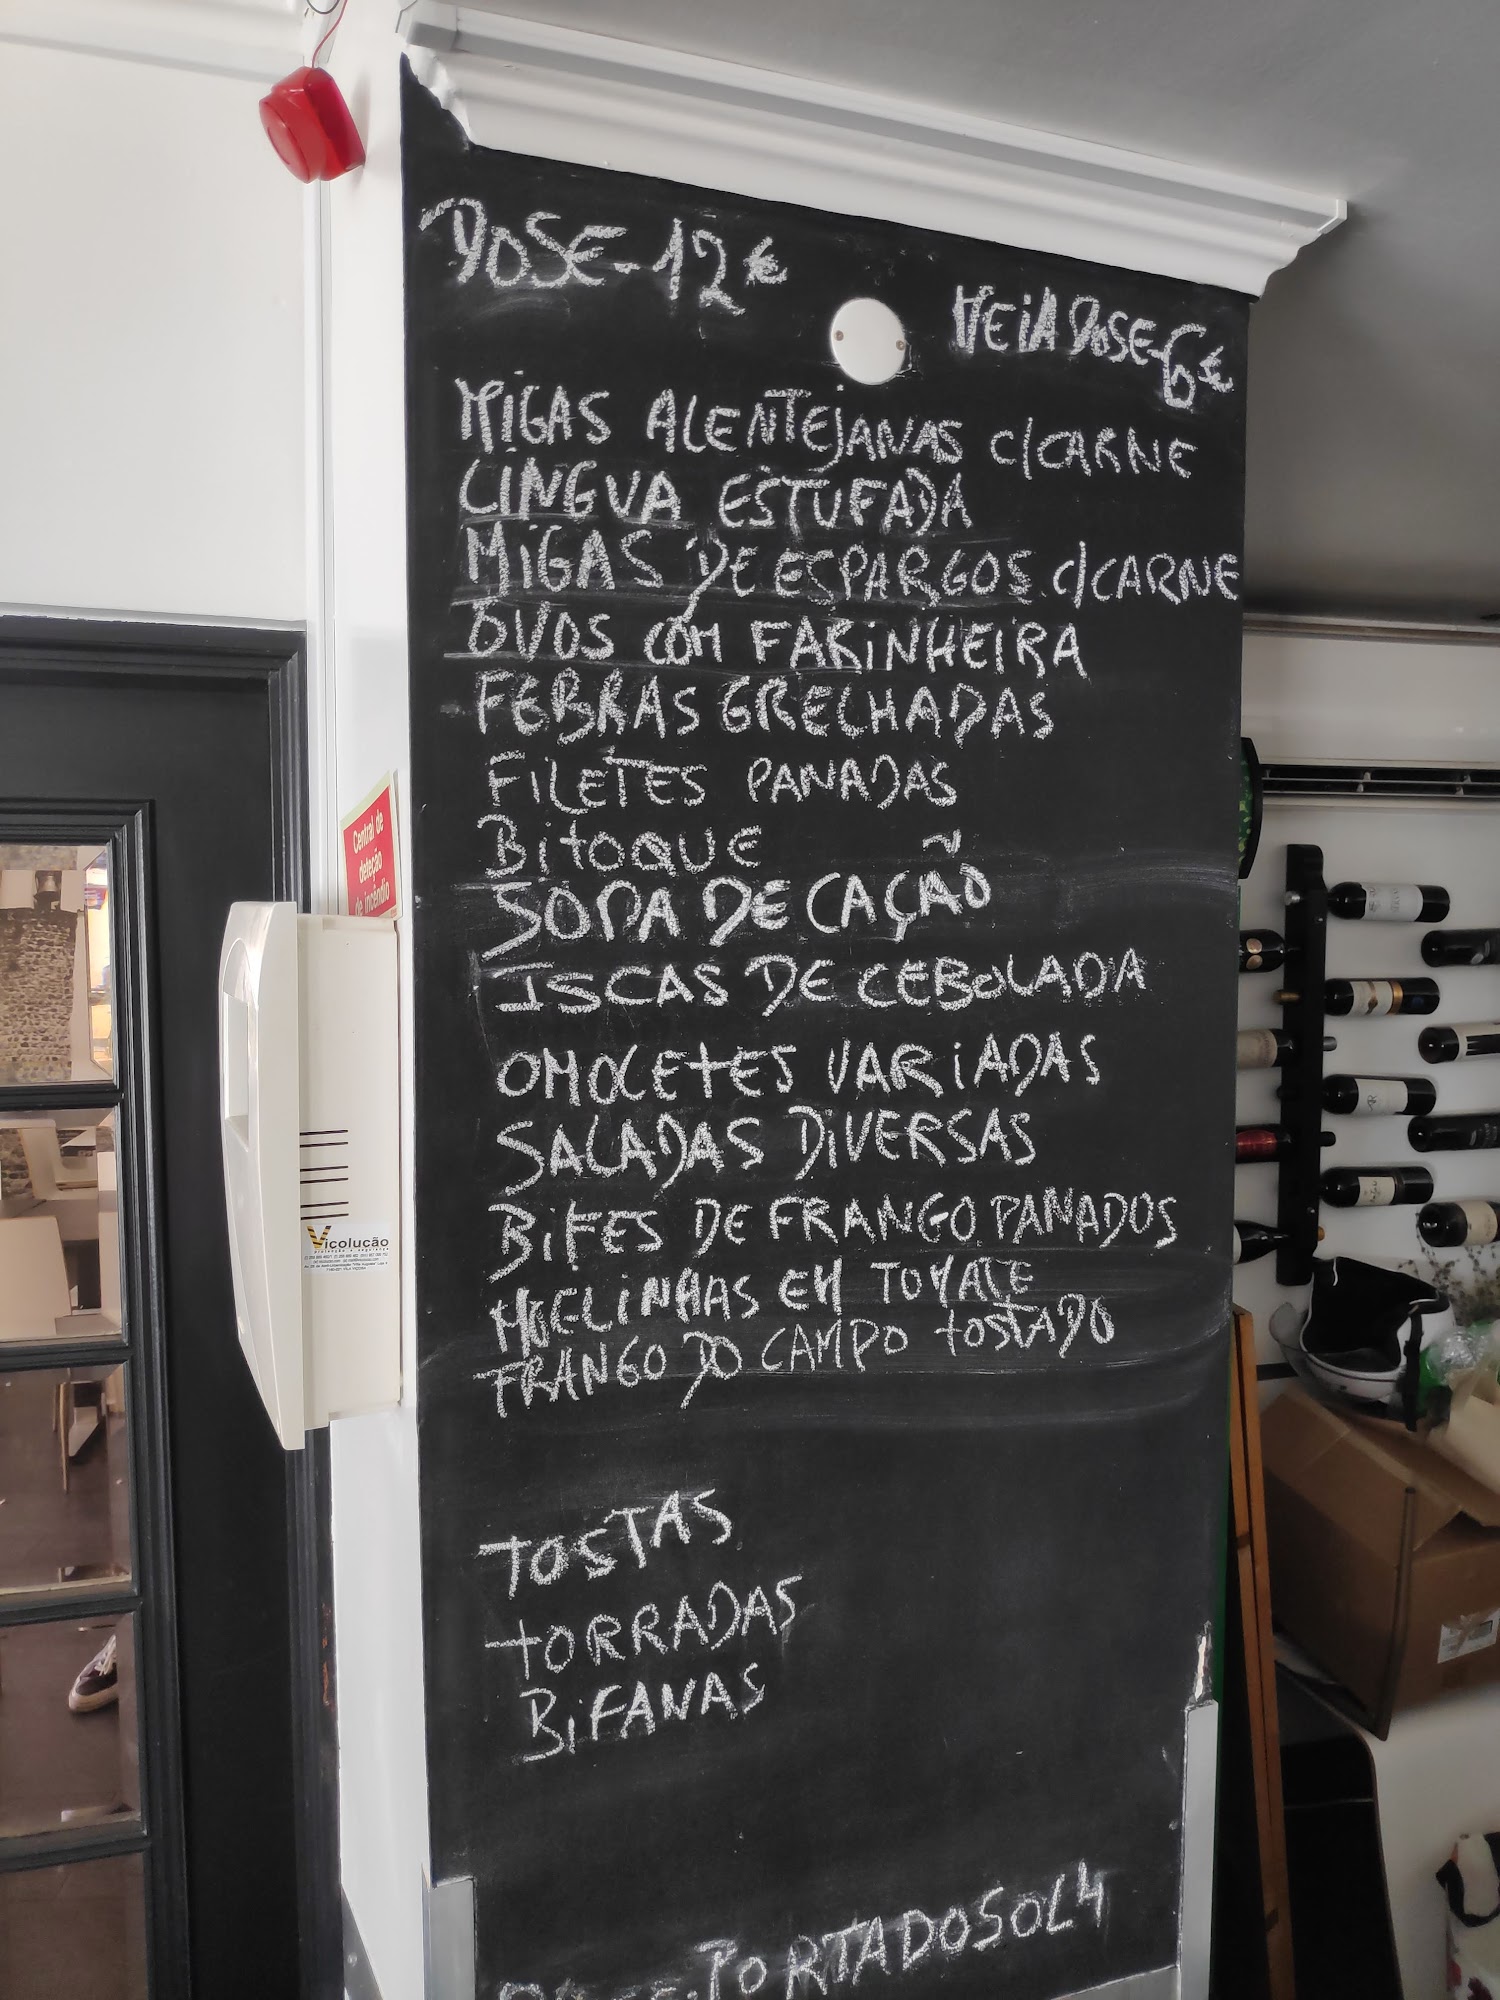 DOSE-12€
MEIA DOSE-6€
MIGAS ALENTEJANAS C/CARNE
LINGUA ESTUFADA
MIGAS DE ESPARGOS C/CARNE
OVOS COM FARINHEIRA
FEBRAS GRELHADAS
FILETES PANADAS
BitoQUE
SOPA DE CAÇÃO
ISCAS DE CEBOLADA
OMOLEtES VARiADAS
SALADAS DiVERSAS
BiFES DE FRANGO PANADOS
MOELiNHAS EM TOMATE
FRANGO DO CAMPO tOSTADO
tOSTAS
tORRADAS
BiFANAS
PORTADOSOL4
Central de
deteção
de incêndio
Vicolução
proteção e segurança